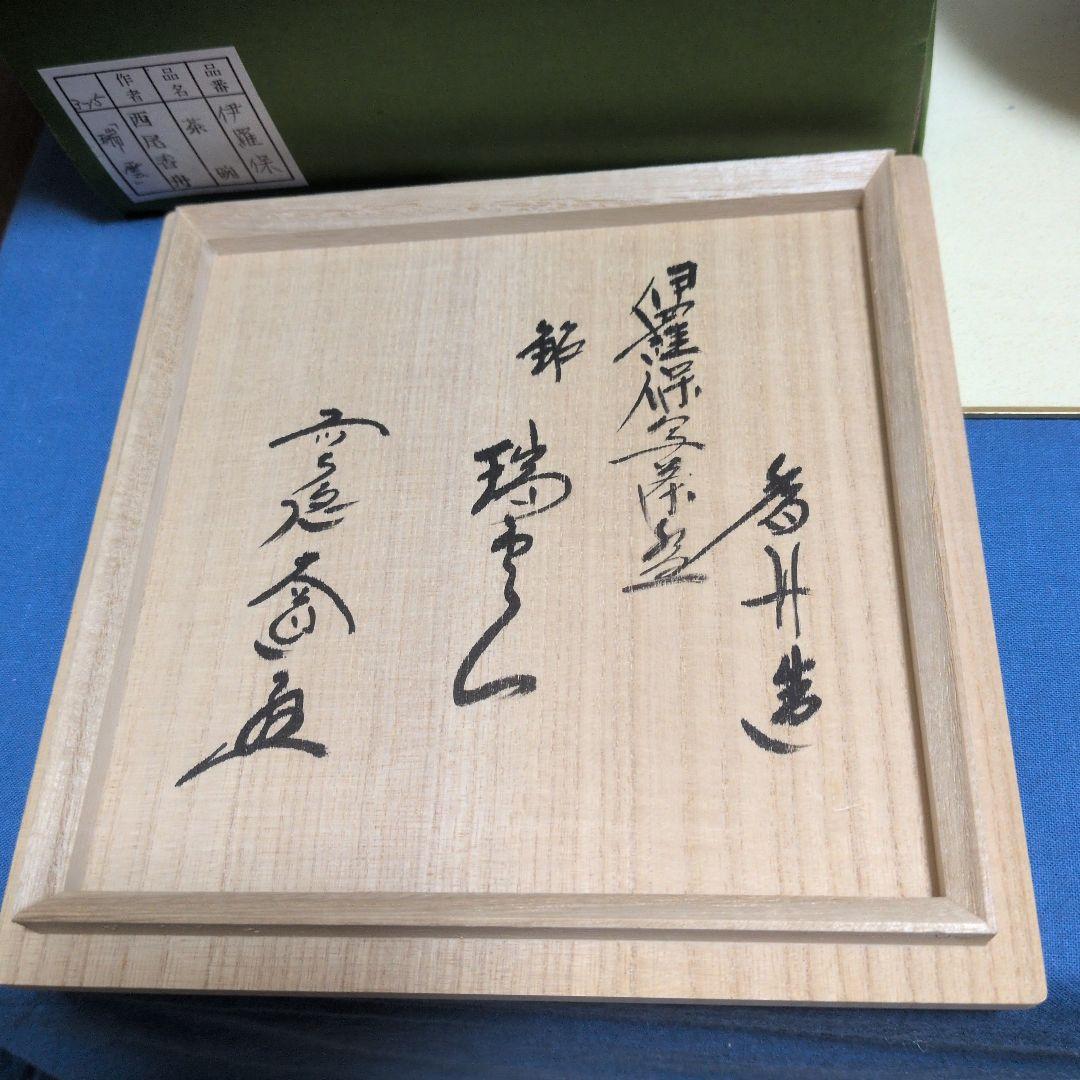 品番
伊羅保
品名
茶碗
作者
西尾香舟
3-15
「瑞雲」
香舟造
伊羅保写茶盌
銘
瑞雲